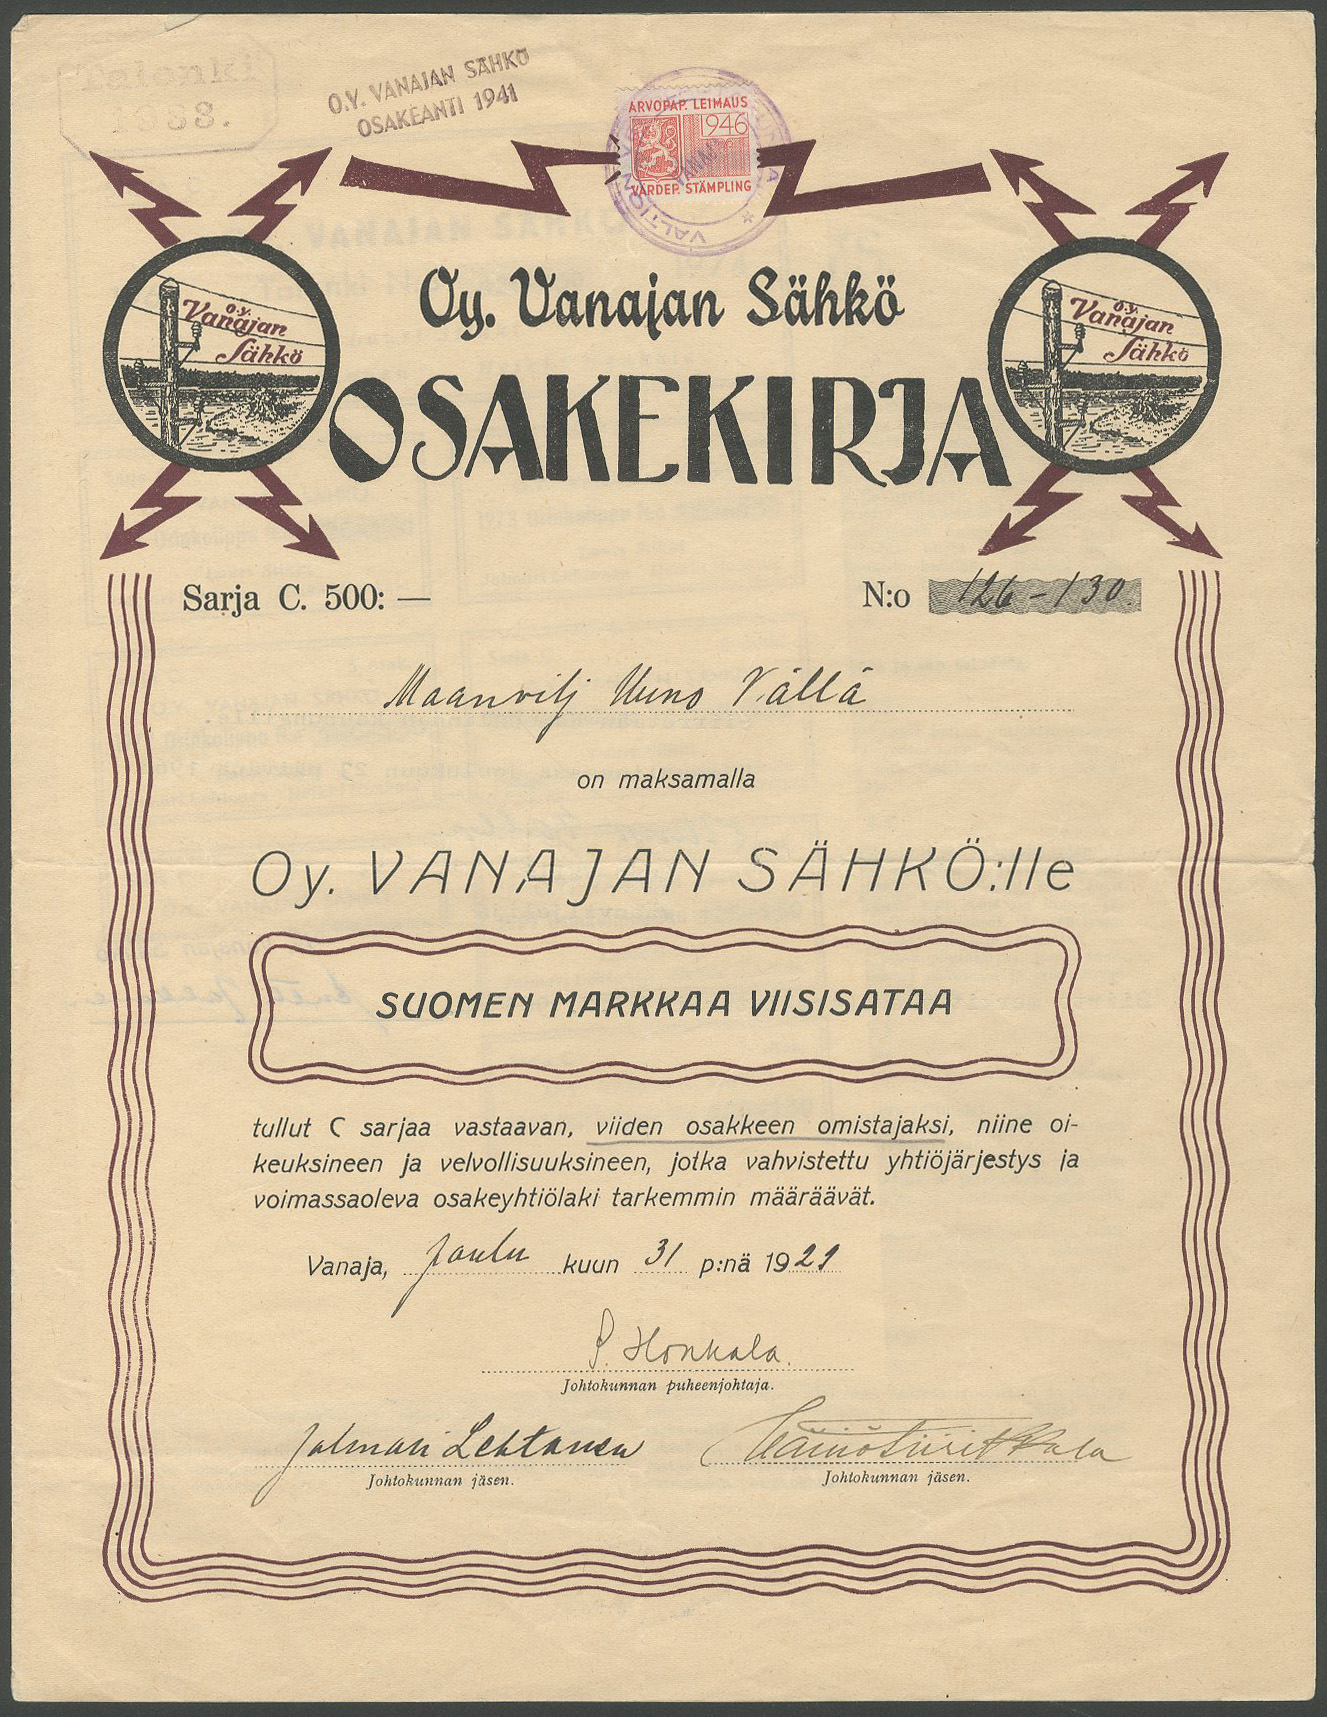 1933.
O.Y. VANAJAN SÄHKÖ
OSAKEANTI 1941
ARVOPAP. LEIMAUS
1946
VÄRDEP. STÄMPLING
VALTION
O.Y.
Vanajan
Sähkö
O.Y.
Vanajan
Sähkö
Oy. Vanajan Sähkö
OSAKEKIRJA
Sarja C. 500: —
N:o 126-130.
Maanvilj Uuno Vällä
on maksamalla
Oy. VANAJAN SÄHKÖ:lle
SUOMEN MARKKAA VIISISATAA
tullut C sarjaa vastaavan, viiden osakkeen omistajaksi, niine oi-
keuksineen ja velvollisuuksineen, jotka vahvistettu yhtiöjärjestys ja
voimassaoleva osakeyhtiölaki tarkemmin määräävät.
Vanaja, Joulu kuun 31 p:nä 1921
P. Honkala.
Johtokunnan puheenjohtaja.
Jalmari Lehtonen
Johtokunnan jäsen.
Johtokunnan jäsen.